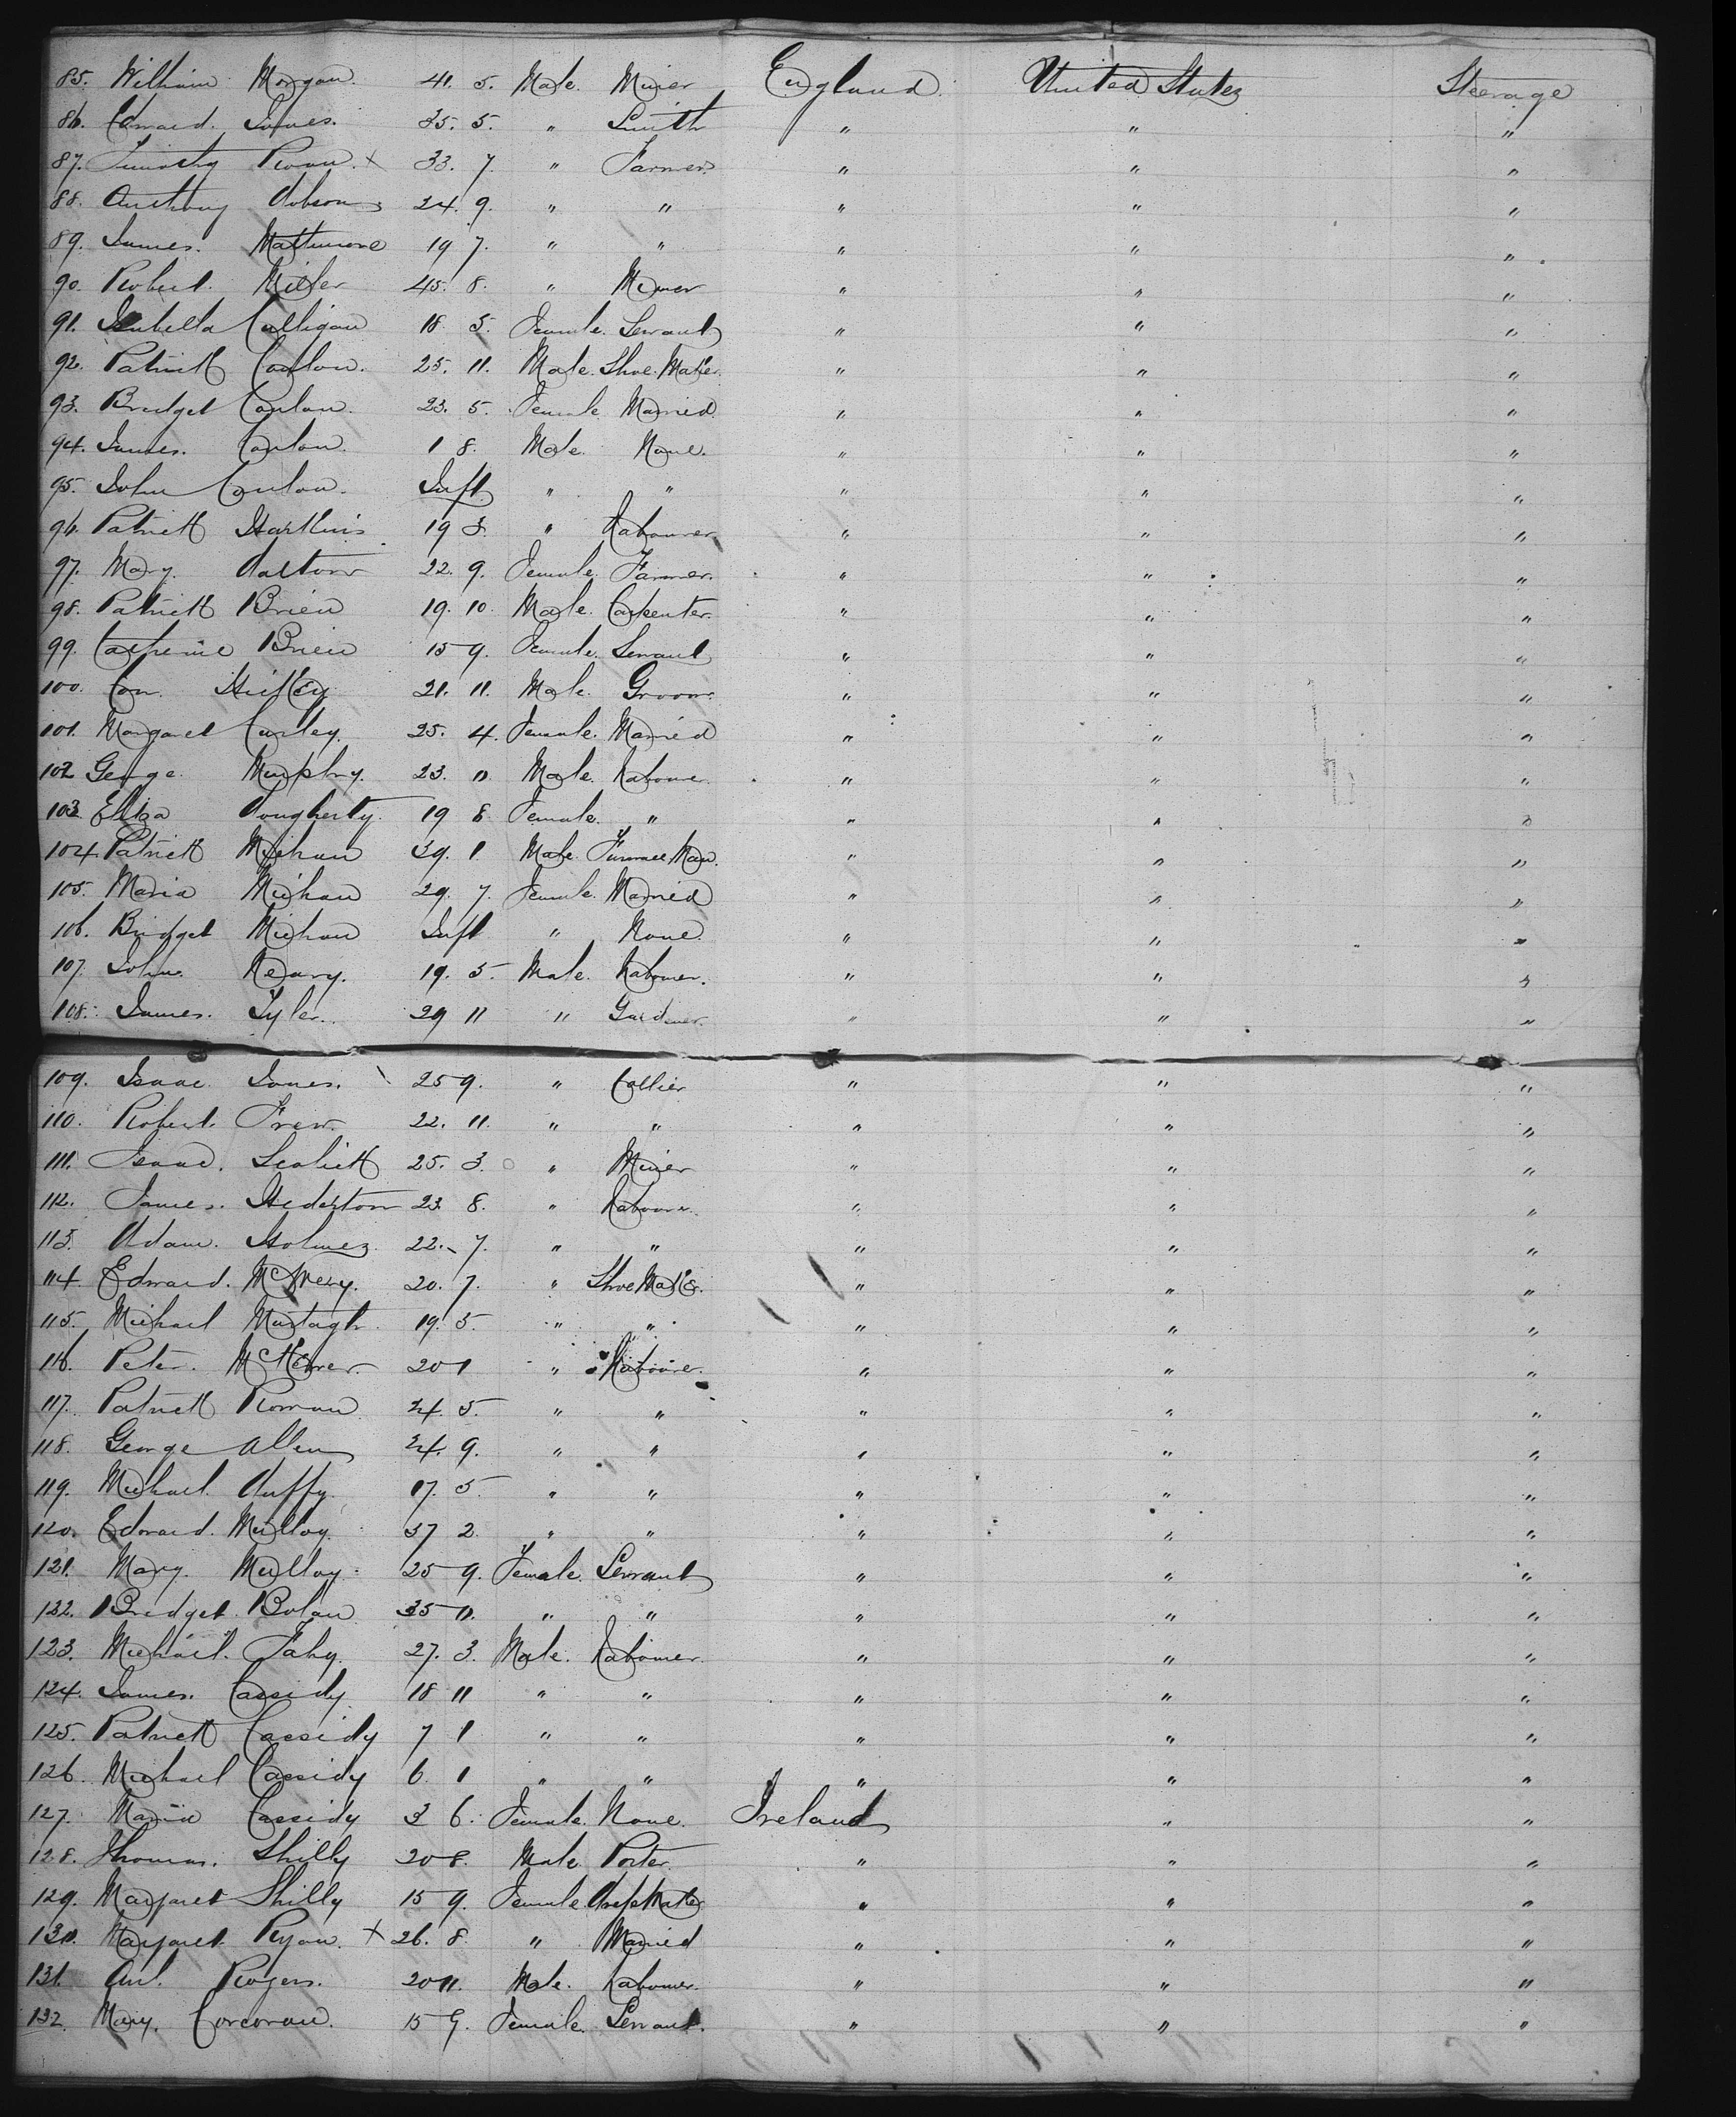 85. William Morgan. 41. 5. Male. Miner England. United States Steerage
86. Edward. Jones. 35. 5. " Smith " " "
87. Timothy Roan. x 33. 7. " Farmer. " " "
88. Anthony Dobson 24. 9. " " " " "
89. James. Mattimore 19 7. " " " " "
90. Robert. Miller 45. 8. " Miner " " "
91. Isabella Culligan 18 5. Female. Servant " " "
92. Patrick Conlon. 25. 11. Male. Shoe Maker. " " "
93. Bridget Conlon. 23. 5. Female Married. " " "
94. James. Conlon. 1 8. Male. None. " " "
95. John Conlon. Inft. " " " " "
96. Patrick Harkins 19 3. " Labourer " " "
97. Mary. Dalton 22. 9. Female. Farmer. " " "
98. Patrick Brien 19. 10. Male. Carpenter. " " "
99. Catherine Brien 15 9. Female. Servant " " "
100. Con. Hickey 21. 11. Male. Groom. " " "
101. Margaret Curley. 25. 4. Female. Married " " "
102 George. Murphy. 23. 11. Male. Labourer " " "
103. Eliza Dougherty. 19 8. Female. " " " "
104. Patrick Mighan 39. 1. Male. Furnace Man. " " "
105. Maria Mighan 29. 7. Female. Married " " "
106. Bridget Mighan Inft " None. " " "
107. John. Keary. 19. 5. Male. Labourer. " " "
108. James. Tyler. 29 11 " Gardner. " " "
109. Isaac. Jones. 25 9. " Collier " " "
110. Robert. Frew. 22. 11. " " " " "
111. Isaac. 25. 3. " Miner " " "
112. James. Hederton 23 8. " Labourer. " " "
113. Adam. Holmes. 22. 7. " " " " "
114. Edward. 20. 7. " Shoe Maker. " " "
115. Michael Murtagh. 19. 5. " " " " "
116. Peter. 20 1 " Labourer. " " "
117. Patrick Ronan 24. 5. " " " " "
118. George Allen 24. 9. " " " " "
119. Michael. Duffy. 17. 5. " " " " "
120. Edward. Mulloy. 37 2. " " " " "
121. Mary. Mulloy. 25 9. Female. Servant " " "
122. Bridget. Bolan 35 11. " " " " "
123. Michael. Fahy. 27. 3. Male. Labourer. " " "
124. James. Cassidy 18 11 " " " " "
125. Patrick Cassidy 7 1 " " " " "
126. Michael Cassidy 6. 1 " " " " "
127. Maria Cassidy 3 6. Female. None. Ireland " "
128. Thomas. Skilly 20 8. Male. Porter. " " "
129. Margaret Skilly 15 9. Female. Dress Maker " " "
130. Margaret. Ryan. x 26. 8. " Married " " "
131. Ant. Rogers. 20 11. Male. Labourer. " " "
132. Mary. Corcoran. 15 9. Female. Servant. " " "